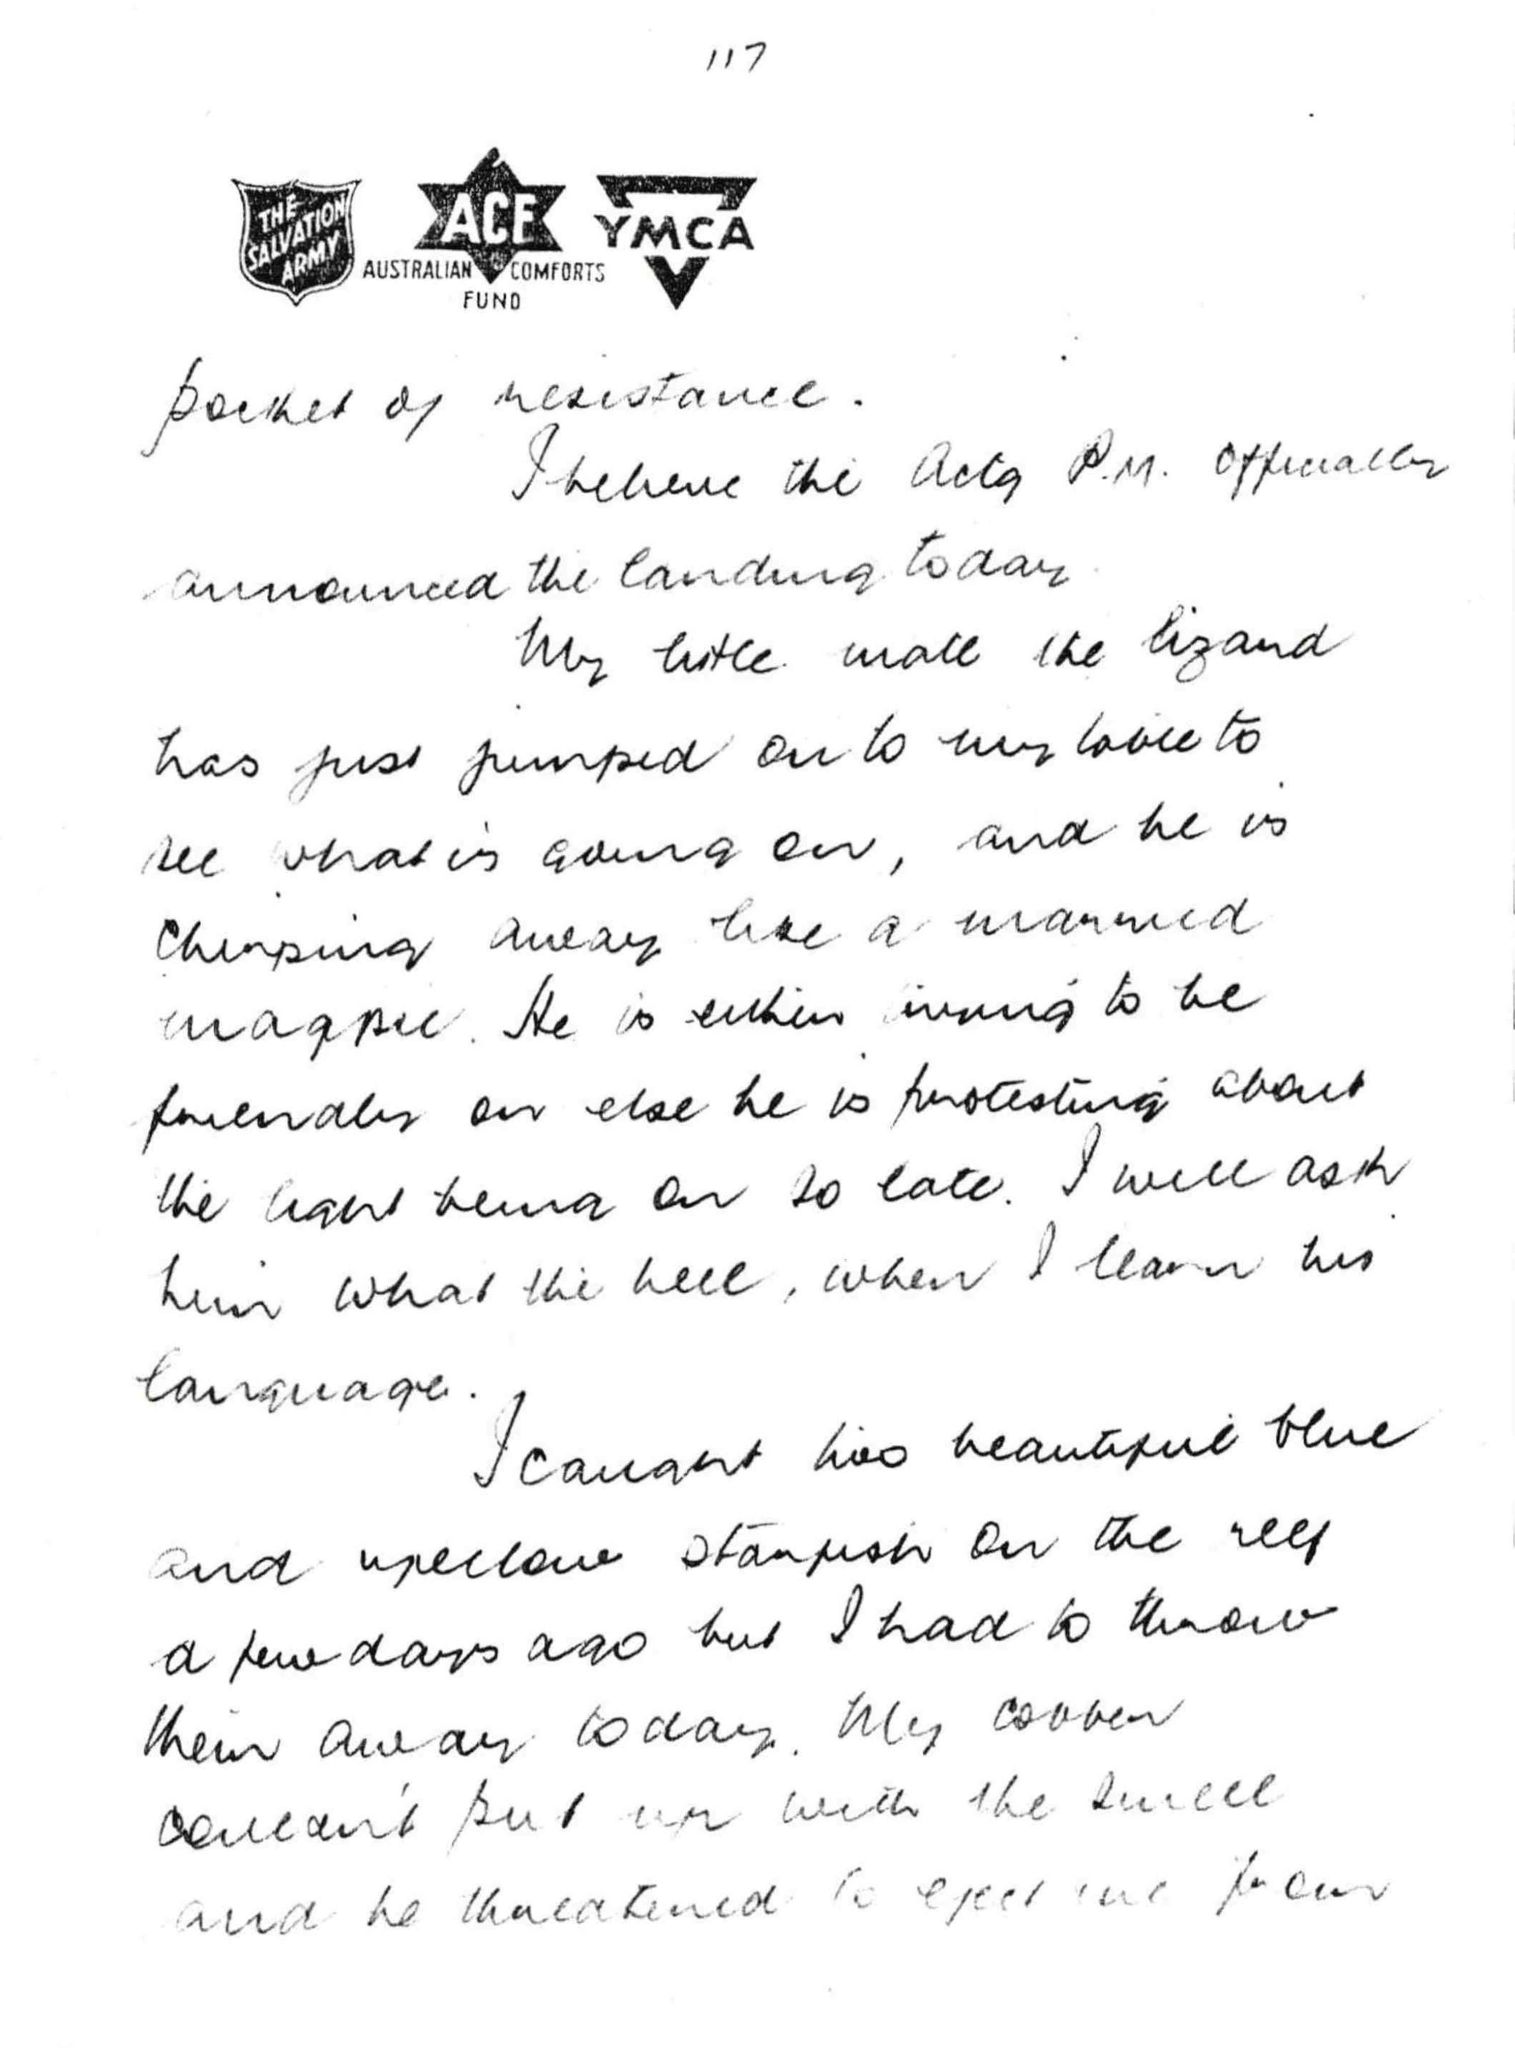 117
THE
SALVATION
ARMY
ACF
YMCA
AUSTRALIAN COMFORTS
FUND
pocket of resistance.
I believe the Actg P.M. officially
announced the landing today.
My little mate the lizard
has just jumped on to my table to
see what is going on, and he is
chirping away like a married
magpie. He is either trying to be
friendly or else he is protesting about
the light being on so late. I will ask
him what the hell, when I learn his
language.
I caught two beautiful blue
and yellow starfish on the reef
a few days ago but I had to throw
them away today. My cobber
couldn't put up with the smell
and he threatened to eject me from